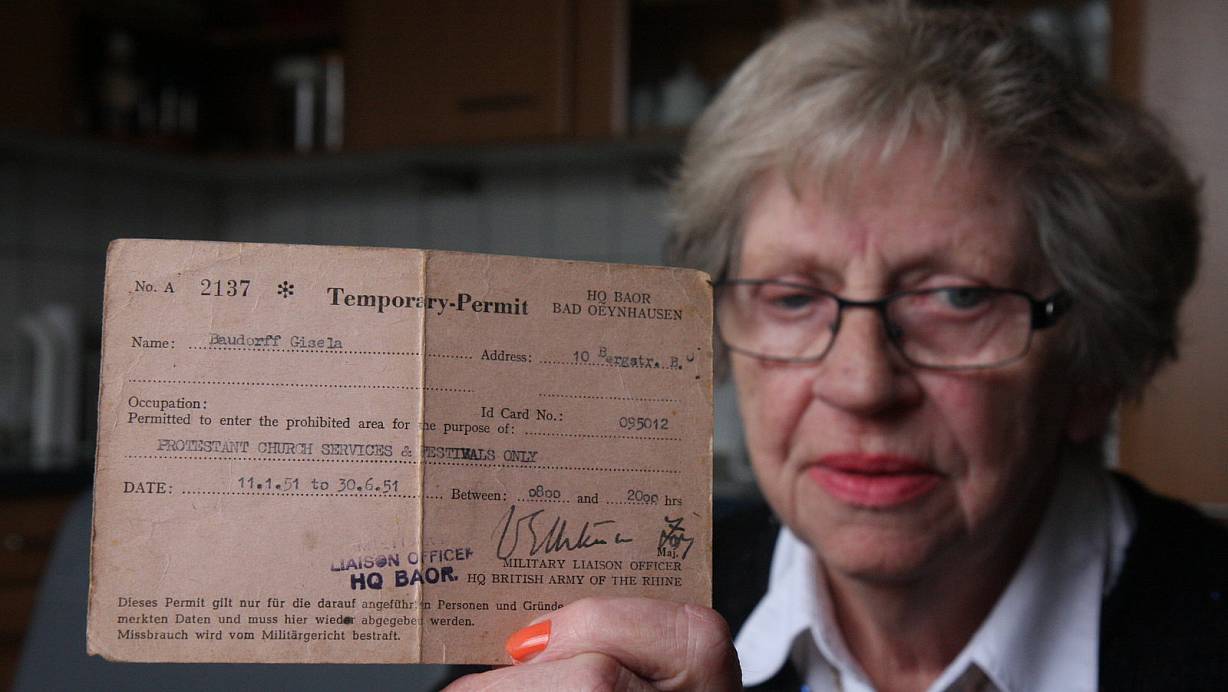 No. A 2137 * Temporary-Permit HQ BAOR
BAD OEYNHAUSEN
Name: Baudorff Gisela Address: 10 Bergstr. B.O
Occupation: Id Card No.: 095012
Permitted to enter the prohibited area for the purpose of:
PROTESTANT CHURCH SERVICES & FESTIVALS ONLY
DATE: 11.1.51 to 30.6.51 Between: 0800 and 2000 hrs
Maj.
LIAISON OFFICER
HQ BAOR.
MILITARY LIAISON OFFICER
HQ BRITISH ARMY OF THE RHINE
Dieses Permit gilt nur für die darauf angeführten Personen und Gründe
merkten Daten und muss hier wieder abgegeben werden.
Missbrauch wird vom Militärgericht bestraft.